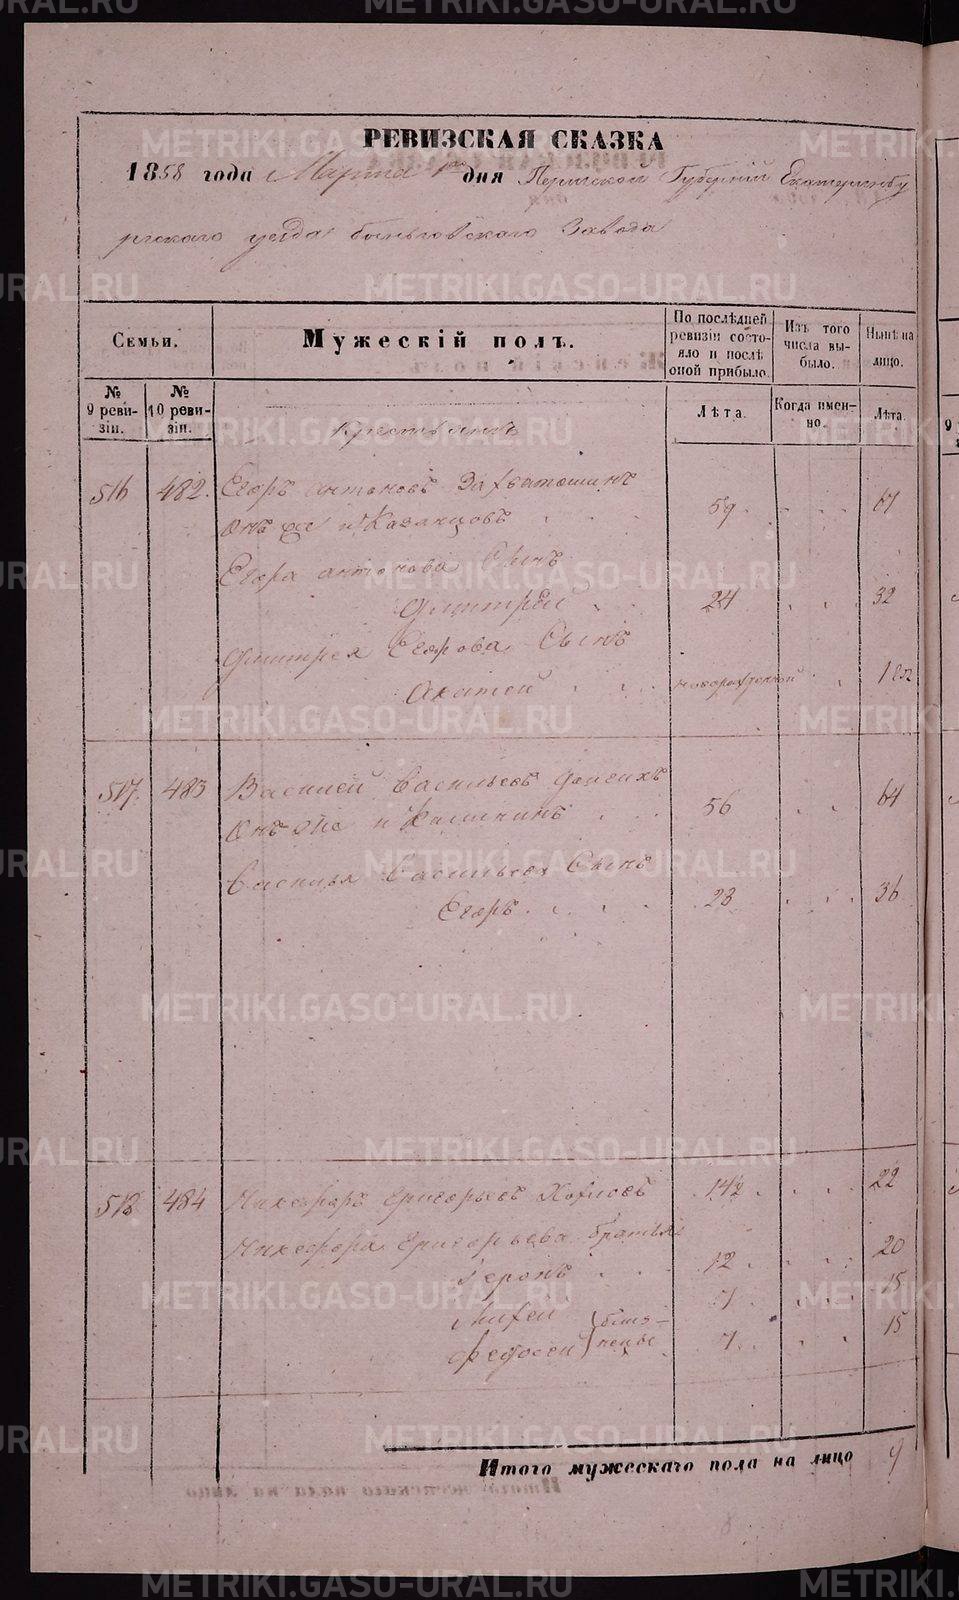 РЕВИЗСКАЯ СКАЗКА
1858 года Марта 1го дня Пермской Губерній Екатеринбу
ргскаго уезда Быньговскаго Завода
Семьи.
Мужескій полъ.
По послѣдней ревизіи состояло и послѣ оной прибыло.
Изъ того числа выбыло.
Нынѣ на лицо.
№ 9 ревизіи.
№ 10 ревизіи.
Лѣта.
Когда именно.
Лѣта.
Крестьянъ
516 482. Егоръ Антоновъ
Онъ же и Казанцовъ 59 67
Егора Антонова Сынъ
Дмитрей 24 32
Дмитрея Егорова Сынъ
новорожденной
517. 483 Василей Васильевъ
Онъ же и Калининъ 56 64
Василья Васильева Сынъ
Егоръ 28 36
518 484 Никифоръ Григорьевъ 142 22
Никифора Григорьева братья
12 20
Михей 7 15
Федосей 7 15
близнецы
Итого мужескаго пола на лицо 9
METRIKI.GASO-URAL.RU